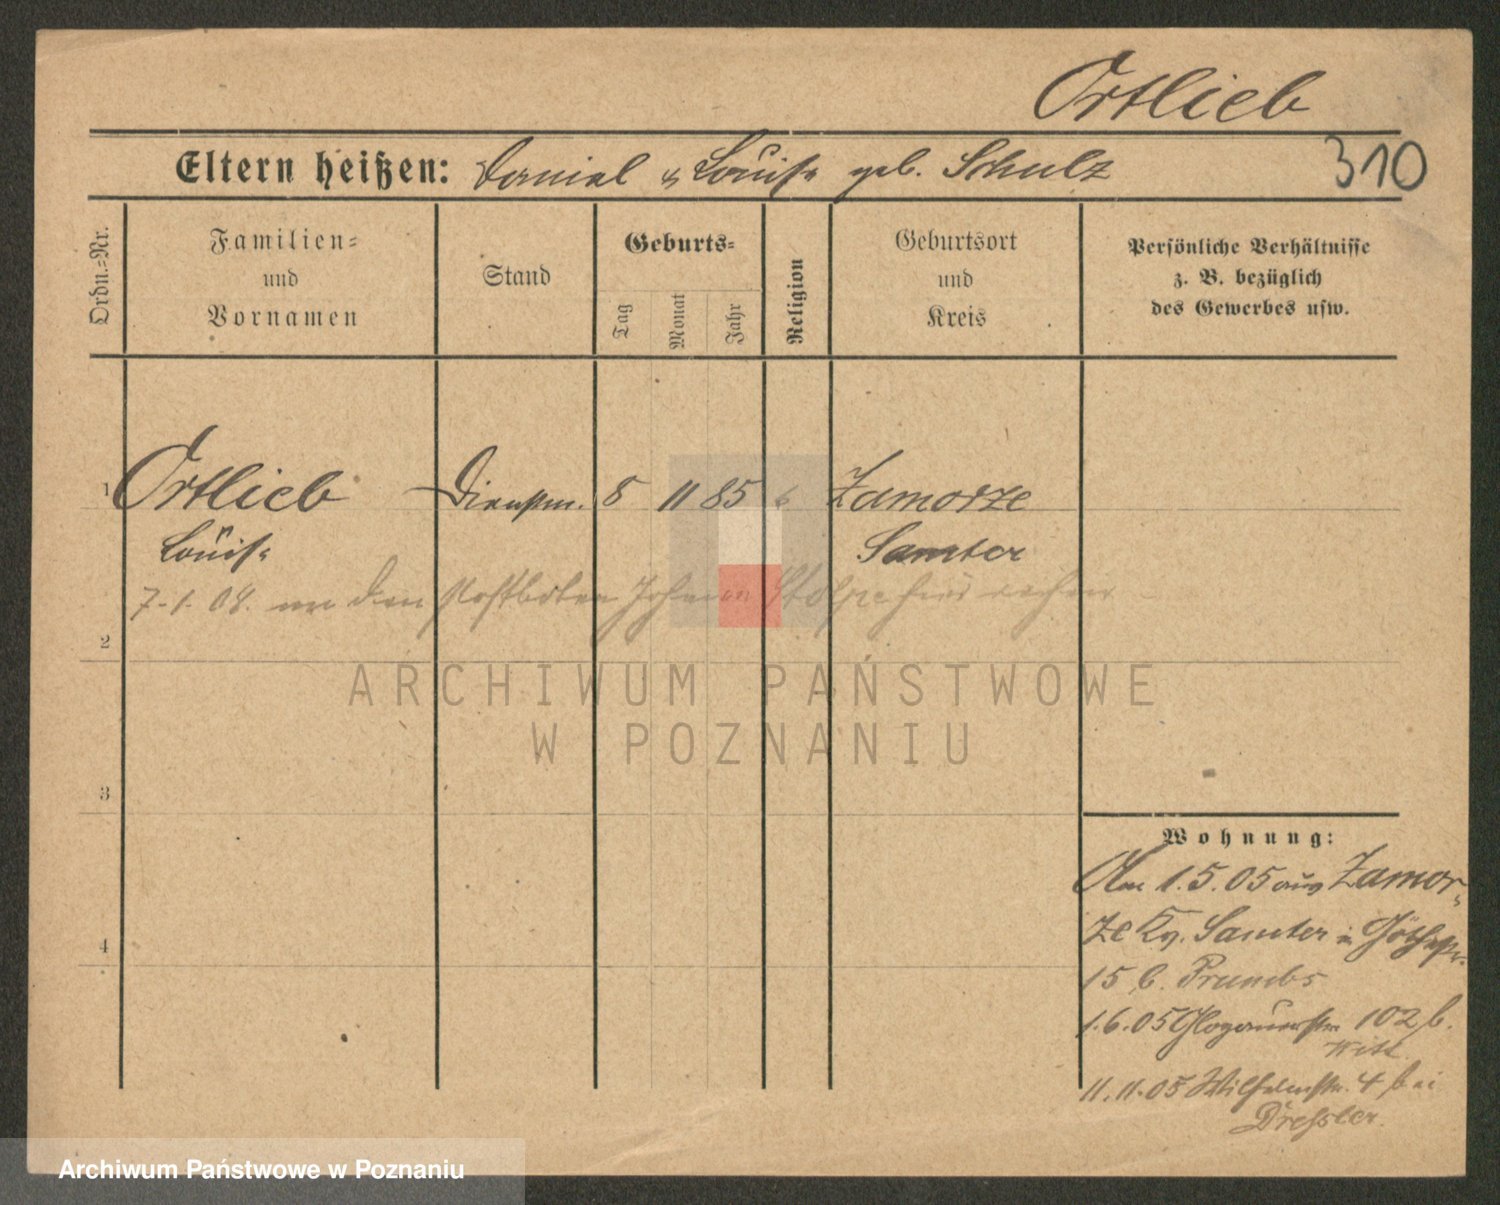 Ortlieb
310
Eltern heißen: Daniel u Louise geb. Schulz
Ordn.-Nr.
Familien-
und
Vornamen
Stand
Geburts-
Tag
Monat
Jahr
Religion
Geburtsort
und
Kreis
Persönliche Verhältnisse
z. B. bezüglich
des Gewerbes usw.
1 Ortlieb Dienstm. 8 11 85 Zamorze
Louise Samter
7.1.08. an den Postboten Johann Stolpe
2
3
4
Wohnung:
Am 1.5.05 aus Zamor-
ze Kr. Samter in Göthestr.
15 b. Prumbs
1.6.05 Glogauerstr. 102 b.
Witt
11.11.05 Wilhelmstr. 4 bei
Dressler.
ARCHIWUM PAŃSTWOWE
W POZNANIU
Archiwum Państwowe w Poznaniu